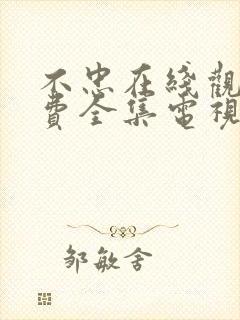 不忠在綫觀
費全集電視
邹敏舍